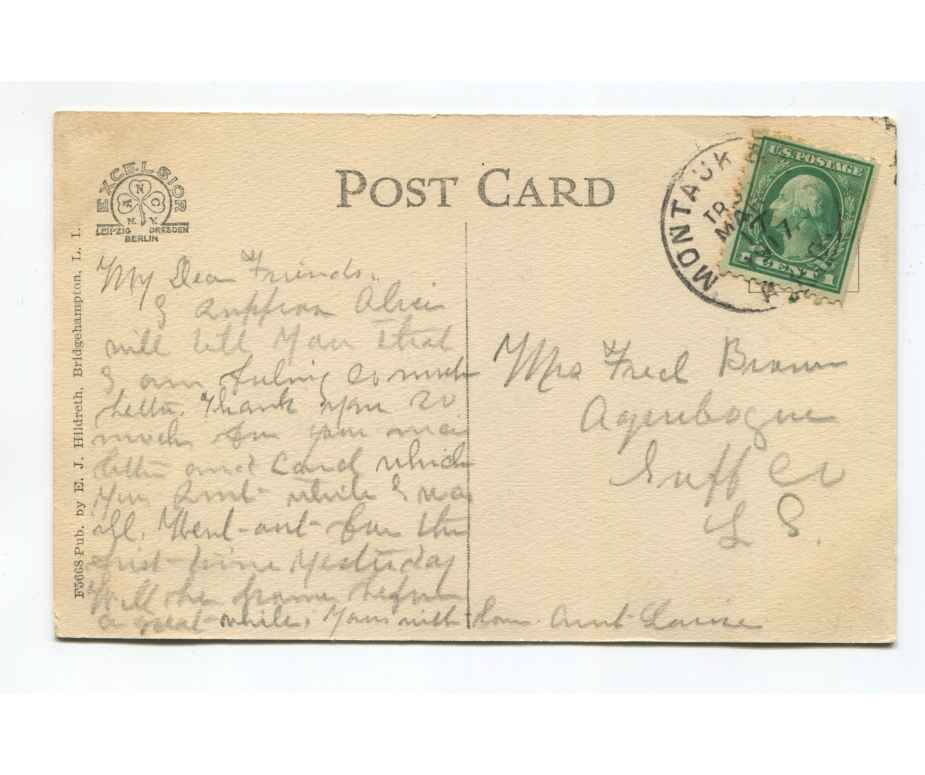 POST CARD
EXCELSIOR
A N C
N.Y.
LEIPZIG DRESDEN
BERLIN
F5668 Pub. by E. J. Hildreth, Bridgehampton, L. I.
MONTAUK
U.S. POSTAGE
1 CENT 1
My Dear Friends.
I suppose Alice
will tell you that
I am feeling so much
better. Thank you so
much for your nice
letter and Card which
you sent while I was
ill. Went out for the
first time yesterday
Will be home before
a great while, Yours with love Aunt Louise
Mrs Fred Brown
Aquebogue
Suff Co
L I.